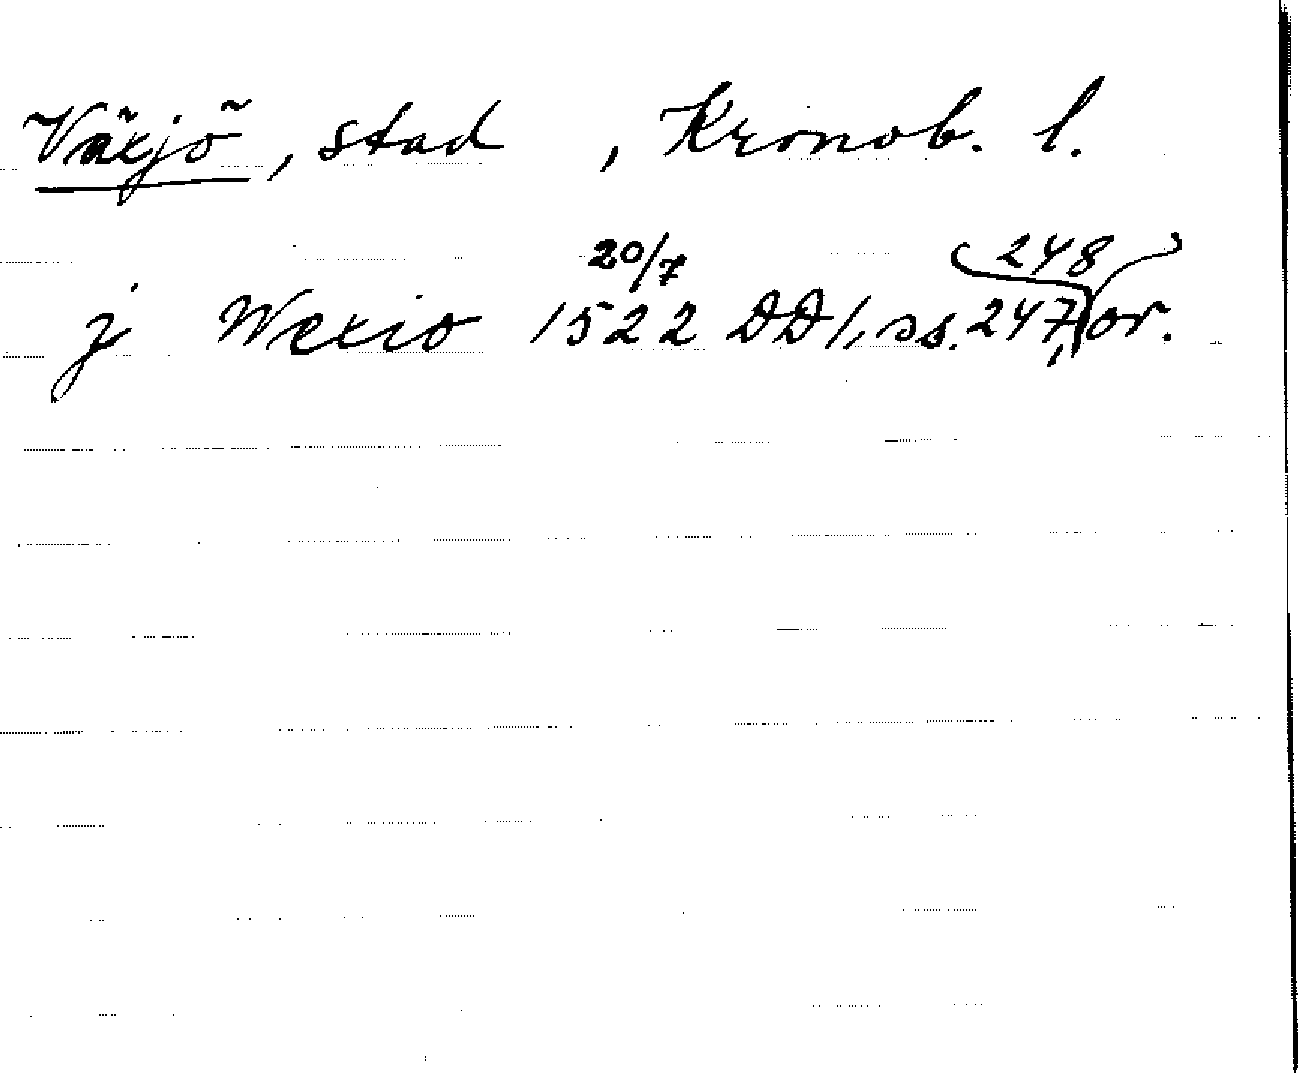 Växjö, stad , Kronob. l.
j Wexio 20/7 1522 DD 1, ss. 247, 248 or.